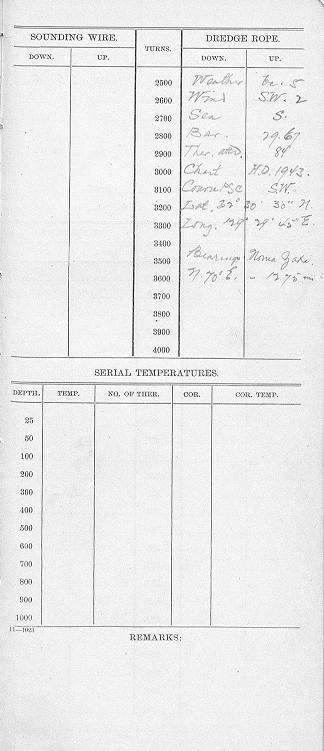 SOUNDING WIRE. TURNS. DREDGE ROPE.
DOWN. UP. DOWN. UP.
2500 Weather bc. 5
2600 Wind S.W. 2
2700 Sea S.
2800 Bar. 29.67
2900 Ther. attd. 84
3000 Chart H.O. 1943.
3100 Course PSC S.W.
3200 Lat. 32° 30' 30" N.
3300 Long. 129° 29' 45" E.
3400
3500 Bearings Noma Zaki.
3600 N. 70° E. - 12.75 mi
3700
3800
3900
4000
SERIAL TEMPERATURES.
DEPTH. TEMP. NO. OF THER. COR. COR. TEMP.
25
50
100
200
300
400
500
600
700
800
900
1000
11—1023
REMARKS: